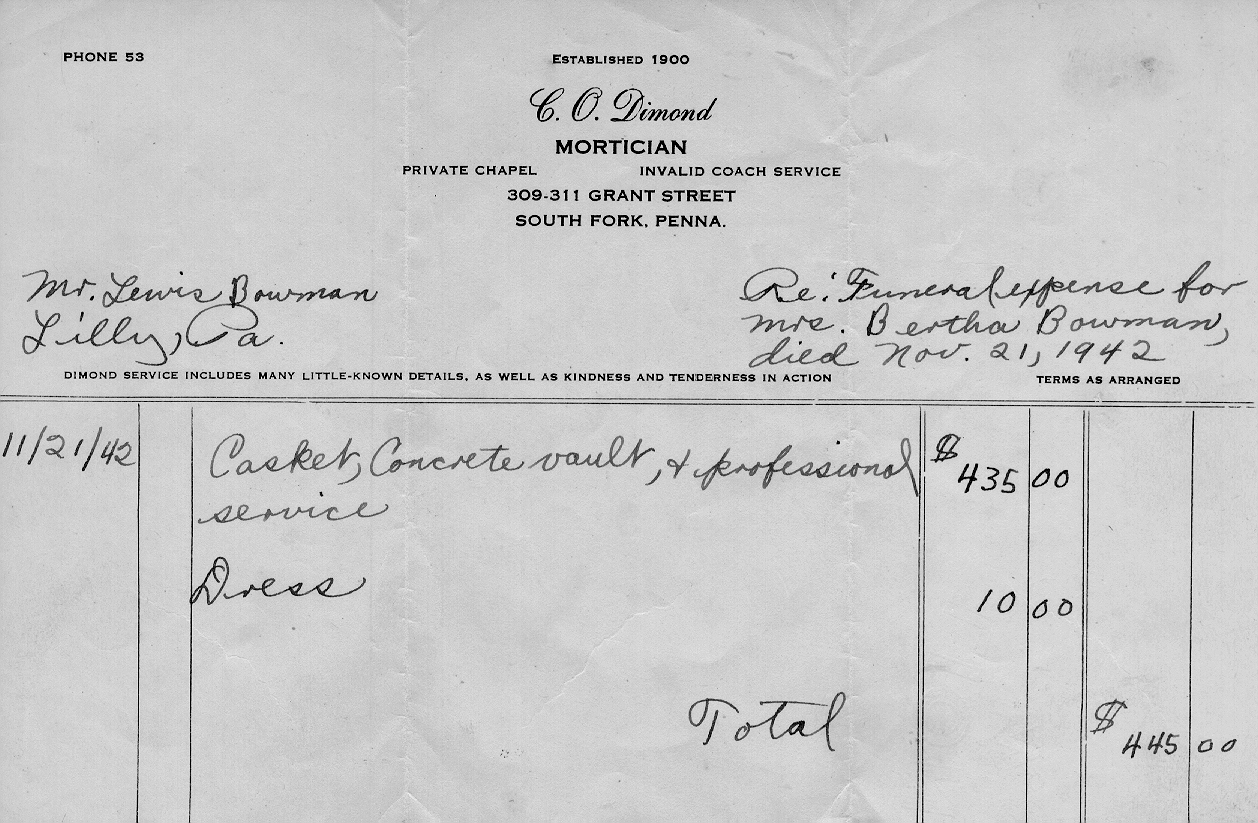 PHONE 53
ESTABLISHED 1900
C. O. Dimond
MORTICIAN
PRIVATE CHAPEL INVALID COACH SERVICE
309-311 GRANT STREET
SOUTH FORK, PENNA.
Mr. Lewis Bowman
Lilly, Pa.
Re: Funeral expense for
Mrs. Bertha Bowman,
died Nov. 21, 1942
DIMOND SERVICE INCLUDES MANY LITTLE-KNOWN DETAILS, AS WELL AS KINDNESS AND TENDERNESS IN ACTION TERMS AS ARRANGED
11/21/42 Casket, Concrete vault, & professional $ 435 00
service
Dress 10 00
Total $ 445 00